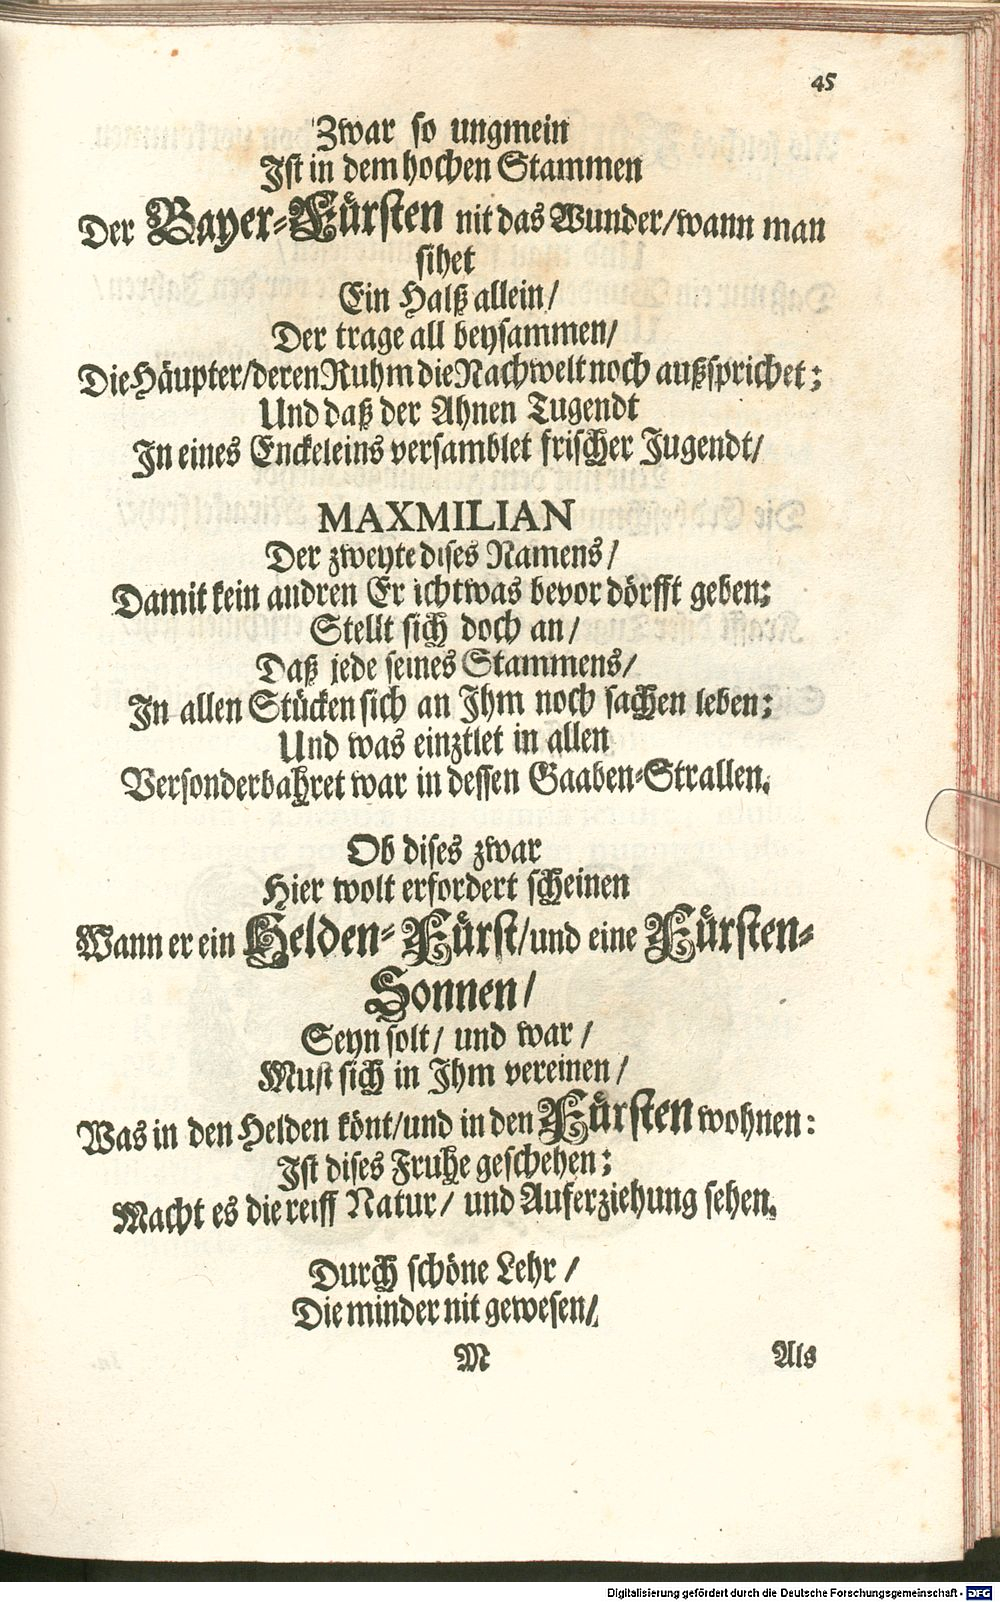 45
Zwar so ungmein
Ist in dem hochen Stammen
Der Bayer-Fürsten nit das Wunder/wann man
sihet
Ein Halß allein/
Der trage all beysammen/
Die Häupter/deren Ruhm die Nachwelt noch außsprichet;
Und daß der Ahnen Tugendt
In eines Enckeleins versamblet frischer Jugendt/
MAXMILIAN
Der zweyte dises Namens/
Damit kein andren Er ichtwas bevor dörfft geben;
Stellt sich doch an/
Daß jede seines Stammens/
In allen Stücken sich an Ihm noch sachen leben;
Und was einztlet in allen
Versonderbahret war in dessen Gaaben-Strallen.
Ob dises zwar
Hier wolt erfordert scheinen
Wann er ein Helden-Fürst/und eine Fürsten-
Sonnen/
Seyn solt/ und war/
Must sich in Ihm vereinen/
Was in den Helden könt/und in den Fürsten wohnen:
Ist dises Fruhe geschehen;
Macht es die reiff Natur/ und Auferziehung sehen.
Durch schöne Lehr/
Die minder nit gewesen/
M Als
Digitalisierung gefördert durch die Deutsche Forschungsgemeinschaft - DFG